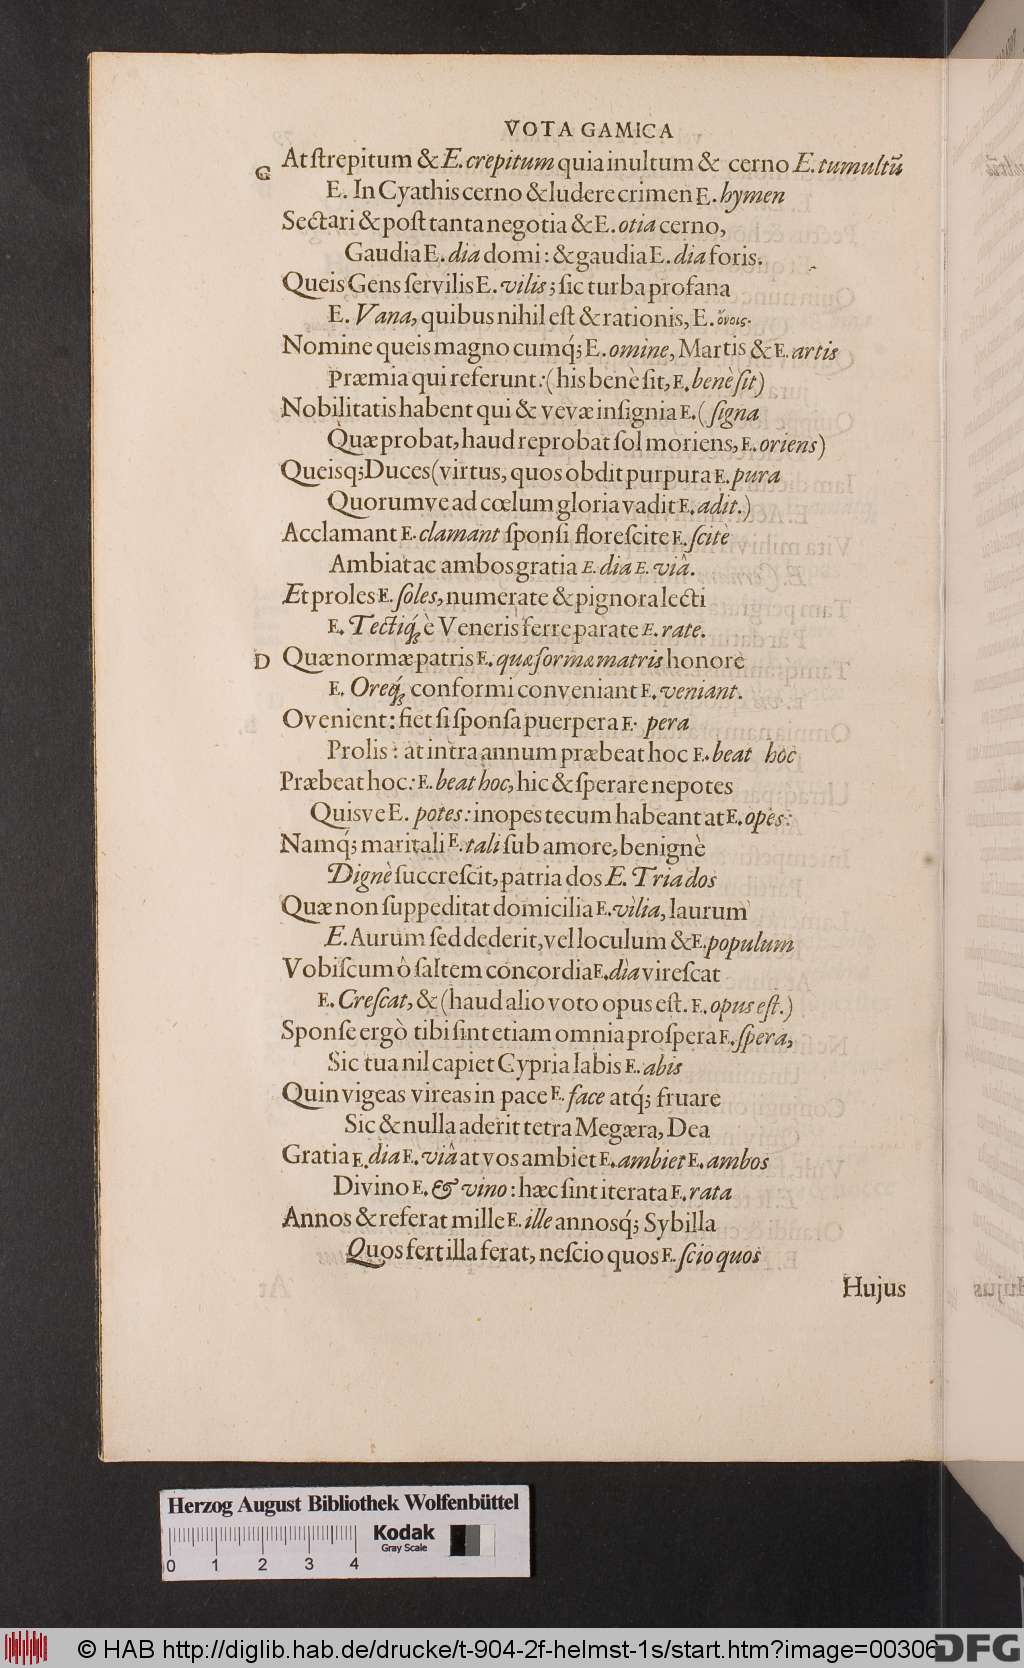 VOTA GAMICA
G At ſtrepitum & E. crepitum quia inultum & cerno E. tumultũ
E. In Cyathis cerno & ludere crimen E. hymen
Sectari & poſt tanta negotia & E. otia cerno,
Gaudia E. dia domi: & gaudia E. dia foris.
Queis Gens ſervilis E. vilis; ſic turba profana
E. Vana, quibus nihil eſt & rationis, E. ὄνοις.
Nomine queis magno cumq́; E. omine, Martis & E. artis
Præmia qui referunt: (his benè ſit, E. benè ſit)
Nobilitatis habent qui & vevæ inſignia E. (ſigna
Quæ probat, haud reprobat ſol moriens, E. oriens)
Queisq; Duces (virtus, quos obdit purpura E. pura
Quorumve ad cœlum gloria vadit E. adit.)
Acclamant E. clamant ſponſi floreſcite E. ſcite
Ambiat ac ambos gratia E. dia E. viâ.
Et proles E. ſoles, numerate & pignora lecti
E. Tectiq́; è Veneris ferre parate E. rate.
D Quæ normæ patris E. quæ formæ matris honore
E. Oreq́; conformi conveniant E. veniant.
O venient: fiet ſi ſponſa puerpera E. pera
Prolis: at intra annum præbeat hoc E. beat hoc
Præbeat hoc: E. beat hoc, hic & ſperare nepotes
Quisve E. potes: inopes tecum habeant at E. opes:
Namq́; maritali E. tali ſub amore, benignè
Dignè ſuccreſcit, patria dos E. Tria dos
Quæ non ſuppeditat domicilia E. vilia, laurum
E. Aurum ſed dederit, vel loculum & E. populum
Vobiſcum ò ſaltem concordia E. dia vireſcat
E. Creſcat, & (haud alio voto opus eſt. E. opus eſt.)
Sponſe ergò tibi ſint etiam omnia proſpera E. ſpera,
Sic tua nil capiet Cypria labis E. abis
Quin vigeas vireas in pace E. face atq́; fruare
Sic & nulla aderit tetra Megæra, Dea
Gratia E. dia E. viâ at vos ambiet E. ambiet E. ambos
Divino E. & vino: hæc ſint iterata E. rata
Annos & referat mille E. ille annosq́; Sybilla
Quos fert illa ferat, neſcio quos E. ſcio quos
Hujus
Herzog August Bibliothek Wolfenbüttel
Kodak
Gray Scale
0 1 2 3 4
© HAB http://diglib.hab.de/drucke/t-904-2f-helmst-1s/start.htm?image=00306
DFG